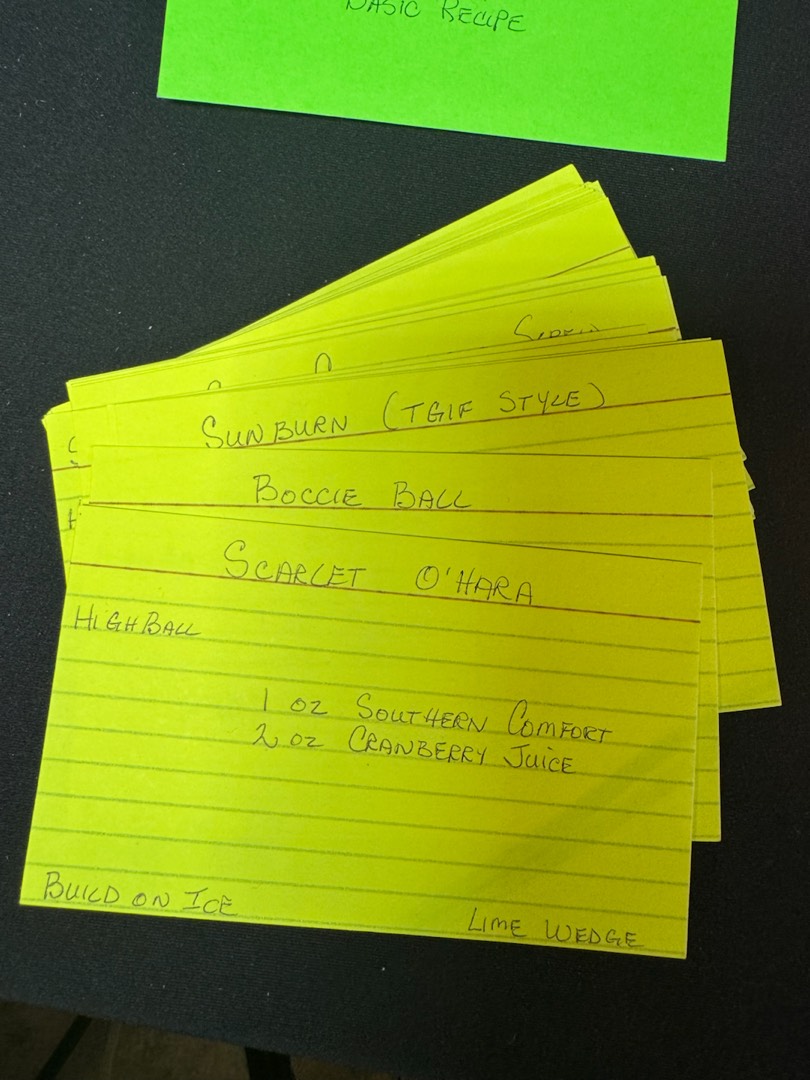 BASIC RECIPE
SUNBURN (TGIF STYLE)
BOCCIE BALL
SCARLET O'HARA
HIGHBALL
1 OZ SOUTHERN COMFORT
2 OZ CRANBERRY JUICE
BUILD ON ICE
LIME WEDGE